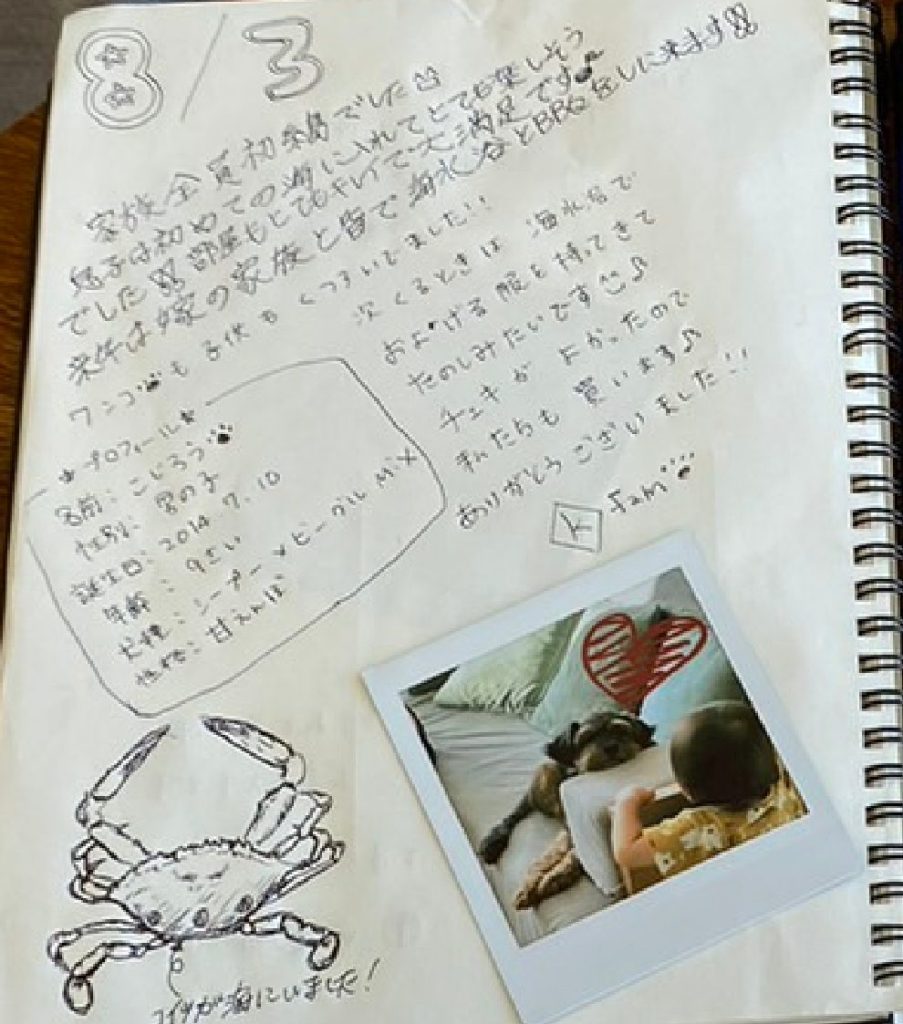 8/3
家族全員初来島でした
息子は初めての海に入れてとても楽しそう
でした 部屋もとてもキレイで大満足です♪
来年は嫁の家族と皆で海水浴とBBQをしに来ます!!
ワンコも子供もくつろいでました!!
次くるときは 海水浴で
およげる服を持ってきて
たのしみたいです♪
チェキが よかったので
私たちも 買います♪
ありがとうございました!!
K fam
★プロフィール★
名前:こじろう
性別:男の子
誕生日:2014.7.10
年齢:9さい
犬種:シープー×ビーグル MIX
性格:甘えんぼ
コイツが海にいました!